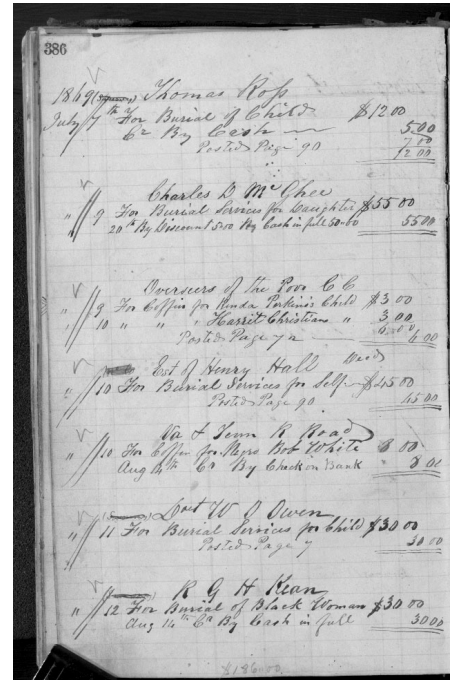 386
1869 Thomas Ross
July 7th For Burial of Child $12 00
Cr By Cash 5.00
7 00
Posted Page 90 12 00
Charles D McGhee
" 9 For Burial Services for Daughter $55 00
20th By Discount 5.00 By Cash in full 50.00 55 00
Overseers of the Poor C C
" 9 For Coffin for Kinda Perkins's Child $3 00
" 10 " " " Harrit Christians " 3 00
Posted Page 72 6 00
Est of Henry Hall Decd
" 10 For Burial Services for Self $45 00
Posted Page 90 45 00
Va & Tenn R Road
" 10 For Coffin for Negro Bob White 8 00
Aug 14th Cr By Check on Bank 8 00
Doct W O Owen
" 11 For Burial Services for Child $30 00
Posted Page 7 30 00
R G H Kean
" 12 For Burial of Black Woman $30 00
Aug 14th Cr By Cash in full 30 00
$186.00